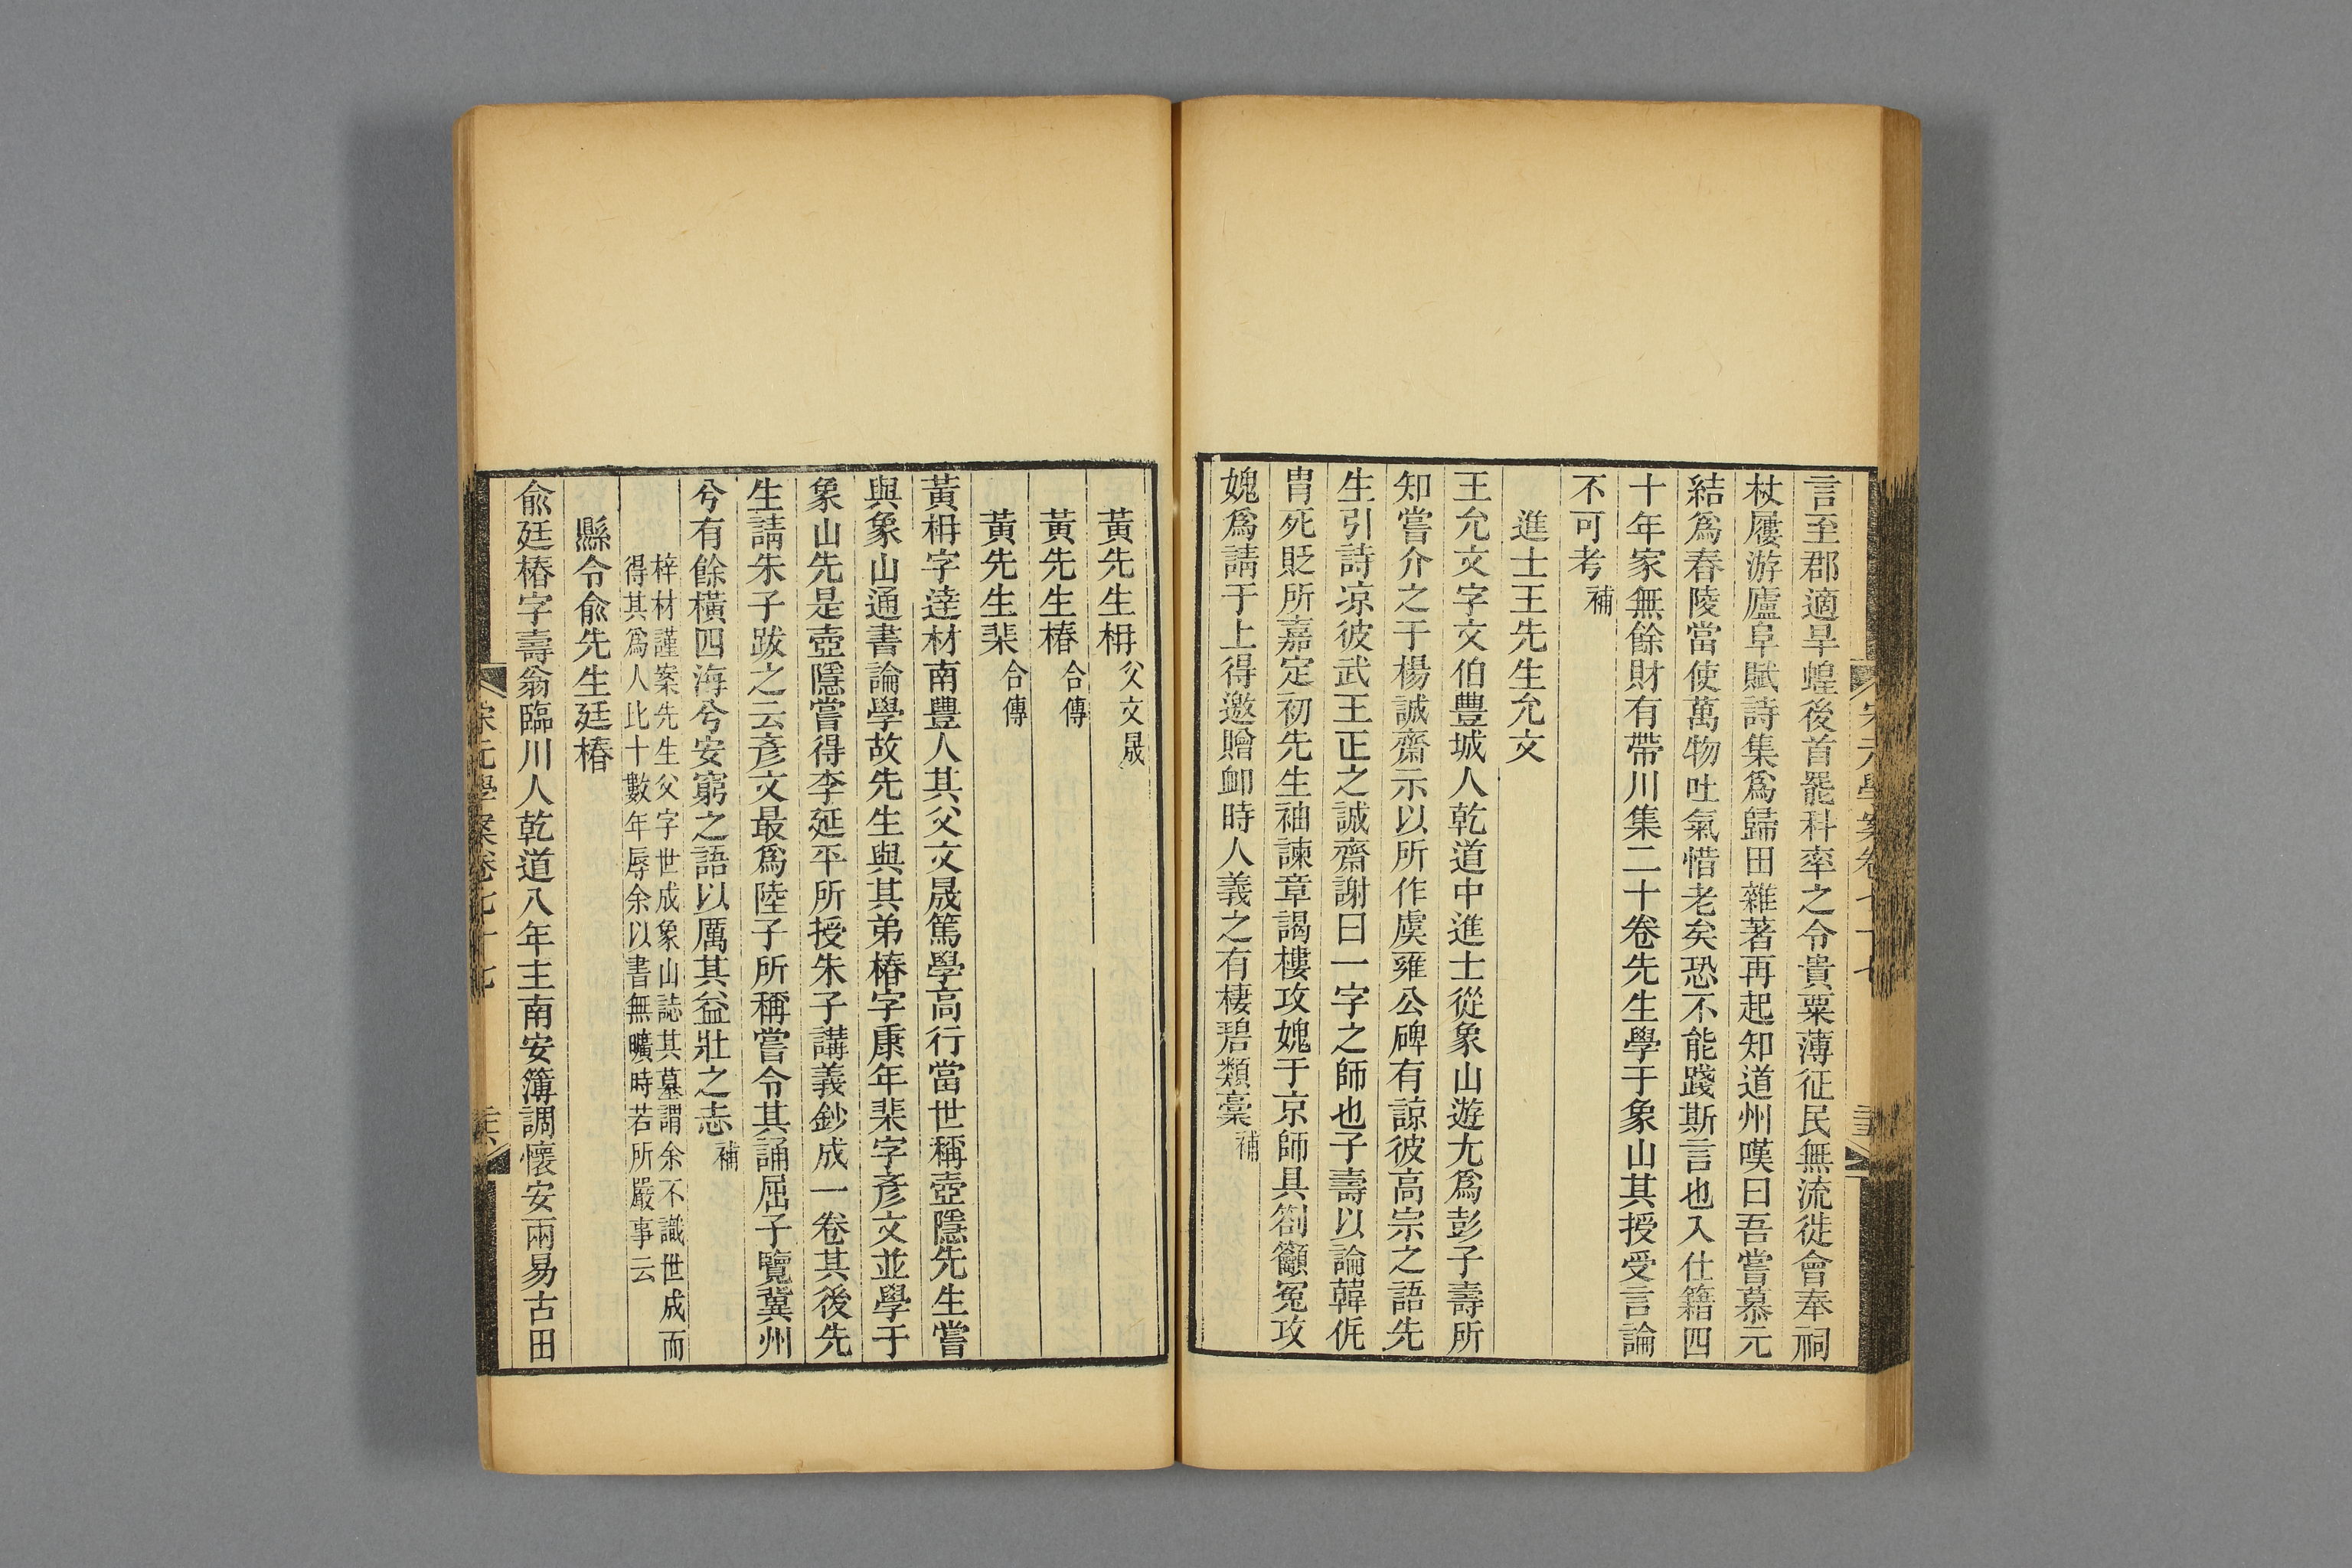 言至郡適旱蝗後首罷科率之令貴粟薄征民無流徙會奉祠
杖屨游廬阜賦詩集爲歸田雜著再起知道州嘆曰吾嘗慕元
結爲舂陵當使萬物吐氣惜老矣恐不能踐斯言也入仕籍四
十年家無餘財有帶川集二十卷先生學于象山其授受言論
不可考補
進士王先生允文
王允文字文伯豐城人乾道中進士從象山遊尤爲彭子壽所
知嘗介之于楊誠齋示以所作虞雍公碑有諒彼高宗之語先
生引詩涼彼武王正之誠齋謝曰一字之師也子壽以論韓侂
胄死貶所嘉定初先生袖諫章謁樓攻媿于京師具劄籲冤攻
媿爲請于上得邀贈卹時人義之有棲碧類稾補
黃先生枏父文晟
黃先生椿合傳
黃先生棐合傳
黃枏字達材南豐人其父文晟篤學高行當世稱壺隱先生嘗
與象山通書論學故先生與其弟椿字康年棐字彥文並學于
象山先是壺隱嘗得李延平所授朱子講義鈔成一卷其後先
生請朱子跋之云彥文最爲陸子所稱嘗令其誦屈子覽冀州
兮有餘橫四海兮安窮之語以厲其益壯之志補
梓材謹案先生父字世成象山誌其墓謂余不識世成而
得其爲人比十數年辱余以書無曠時若所嚴事云
縣令俞先生廷椿
俞廷椿字壽翁臨川人乾道八年主南安簿調懷安兩易古田
宋元學案卷七十七